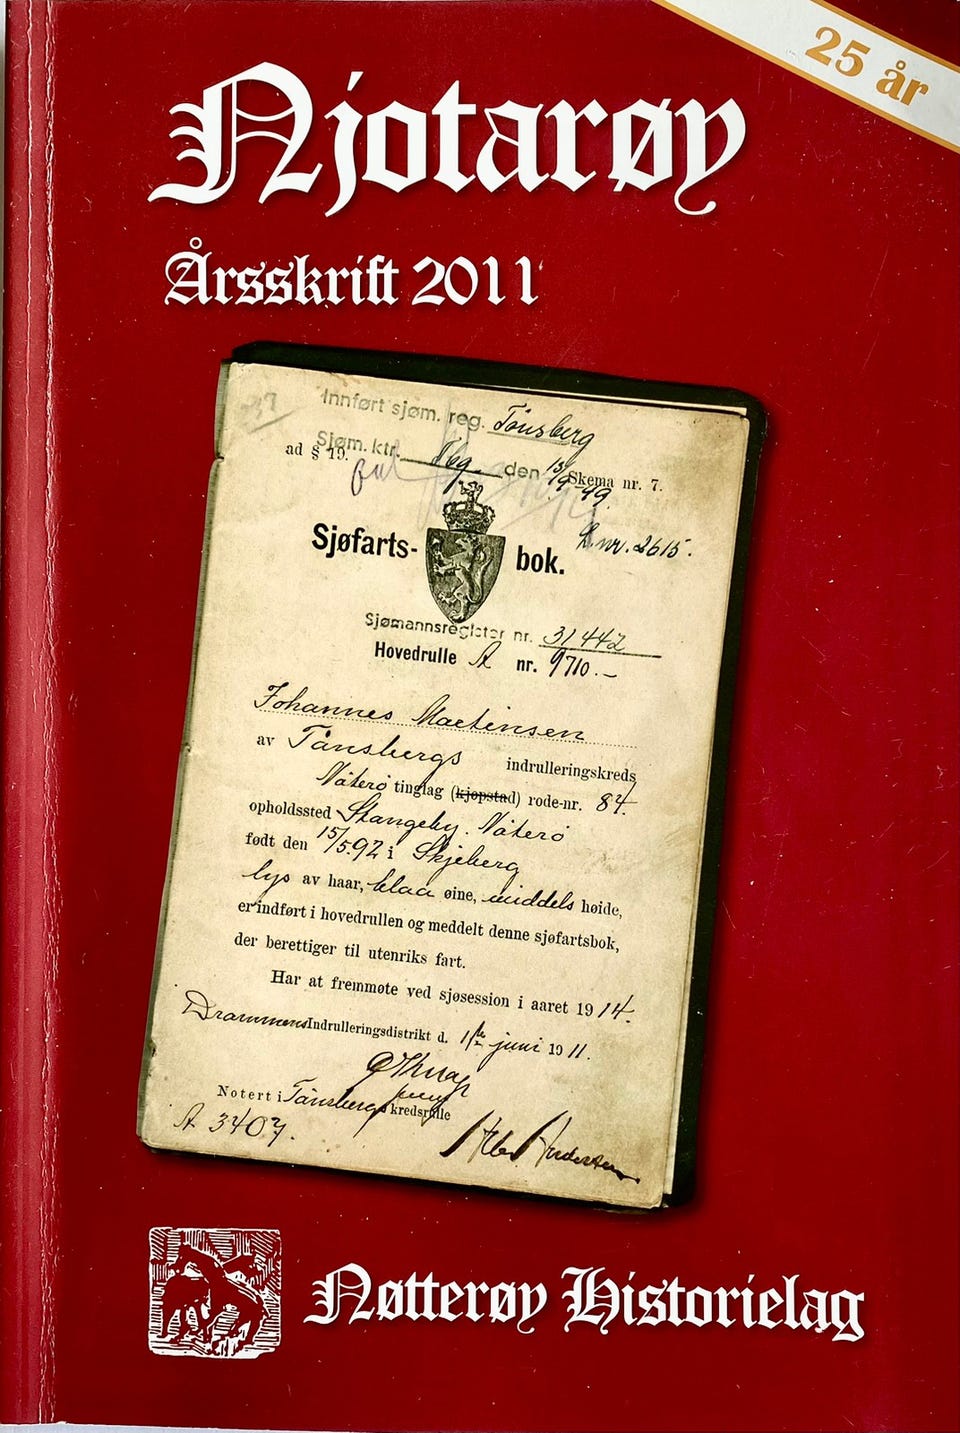 25 år
Njotarøy
Årsskrift 2011
Innført sjøm. reg. Tönsberg
Sjøm. ktr. Tbg. den 13/9-49.
ad § 19. Skema nr. 7.
L.nr. 2615.
Sjøfarts- bok.
Sjømannsregister nr. 31442
Hovedrulle A nr. 9710.-
Johannes Martinsen
av Tönsbergs indrulleringskreds
Nöterö tinglag (kjøpstad) rode-nr. 84.
opholdssted Stangeby. Nöterö
født den 15/5.92 i Skjeberg
lys av haar, blaa øine, middels høide,
er indført i hovedrullen og meddelt denne sjøfartsbok,
der berettiger til utenriks fart.
Har at fremmøte ved sjøsession i aaret 1914.
Drammens Indrulleringsdistrikt d. 1ste juni 1911.
Notert i Tönsbergs kredsrulle
A 3407.
Andersen
Nøtterøy Historielag